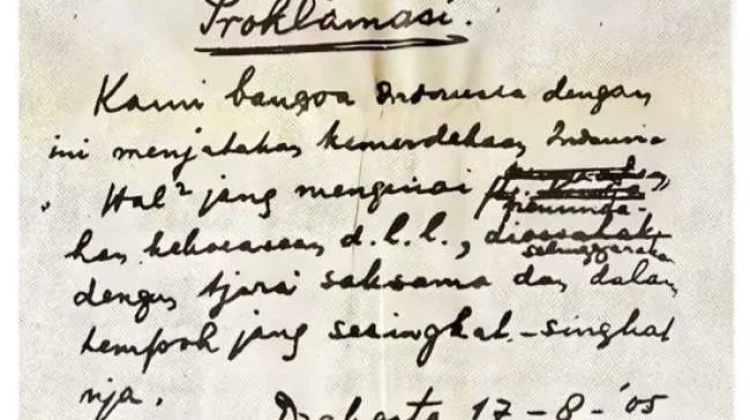 Proklamasi.
Kami bangsa Indonesia dengan
ini menjatakan kemerdekaan Indonesia
Hal² jang mengenai
peminda-
han kekoeasaan d.l.l., dioesahak
selenggarakan
dengan tjara saksama dan dalam
tempoh jang sesingkat-singkat
nja.
Djakarta 17-8-'05